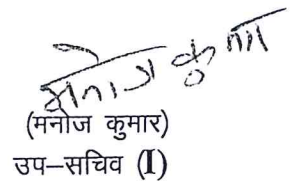 मनोज कुमार
(मनोज कुमार)
उप–सचिव (I)